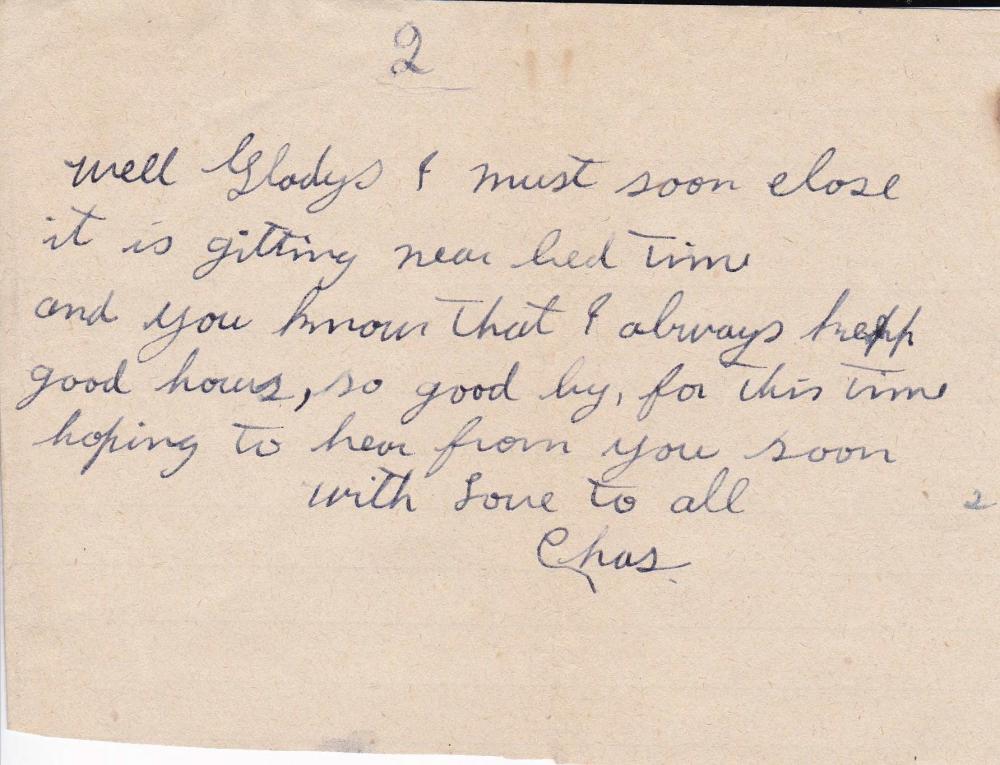 2
well Gladys I must soon close
it is gitting near bed time
and you know that I always keep
good hours, so good by, for this time
hoping to hear from you soon
with Love to all
2
Chas.